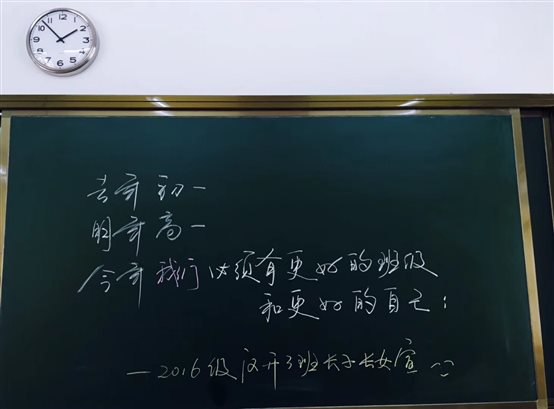 12 1 2 3 4 5 6 7 8 9 10 11
去年 初一
明年 高一
今年 我们必须有更好的班级
和更好的自己!
—2016级汉开3班长子长女宣